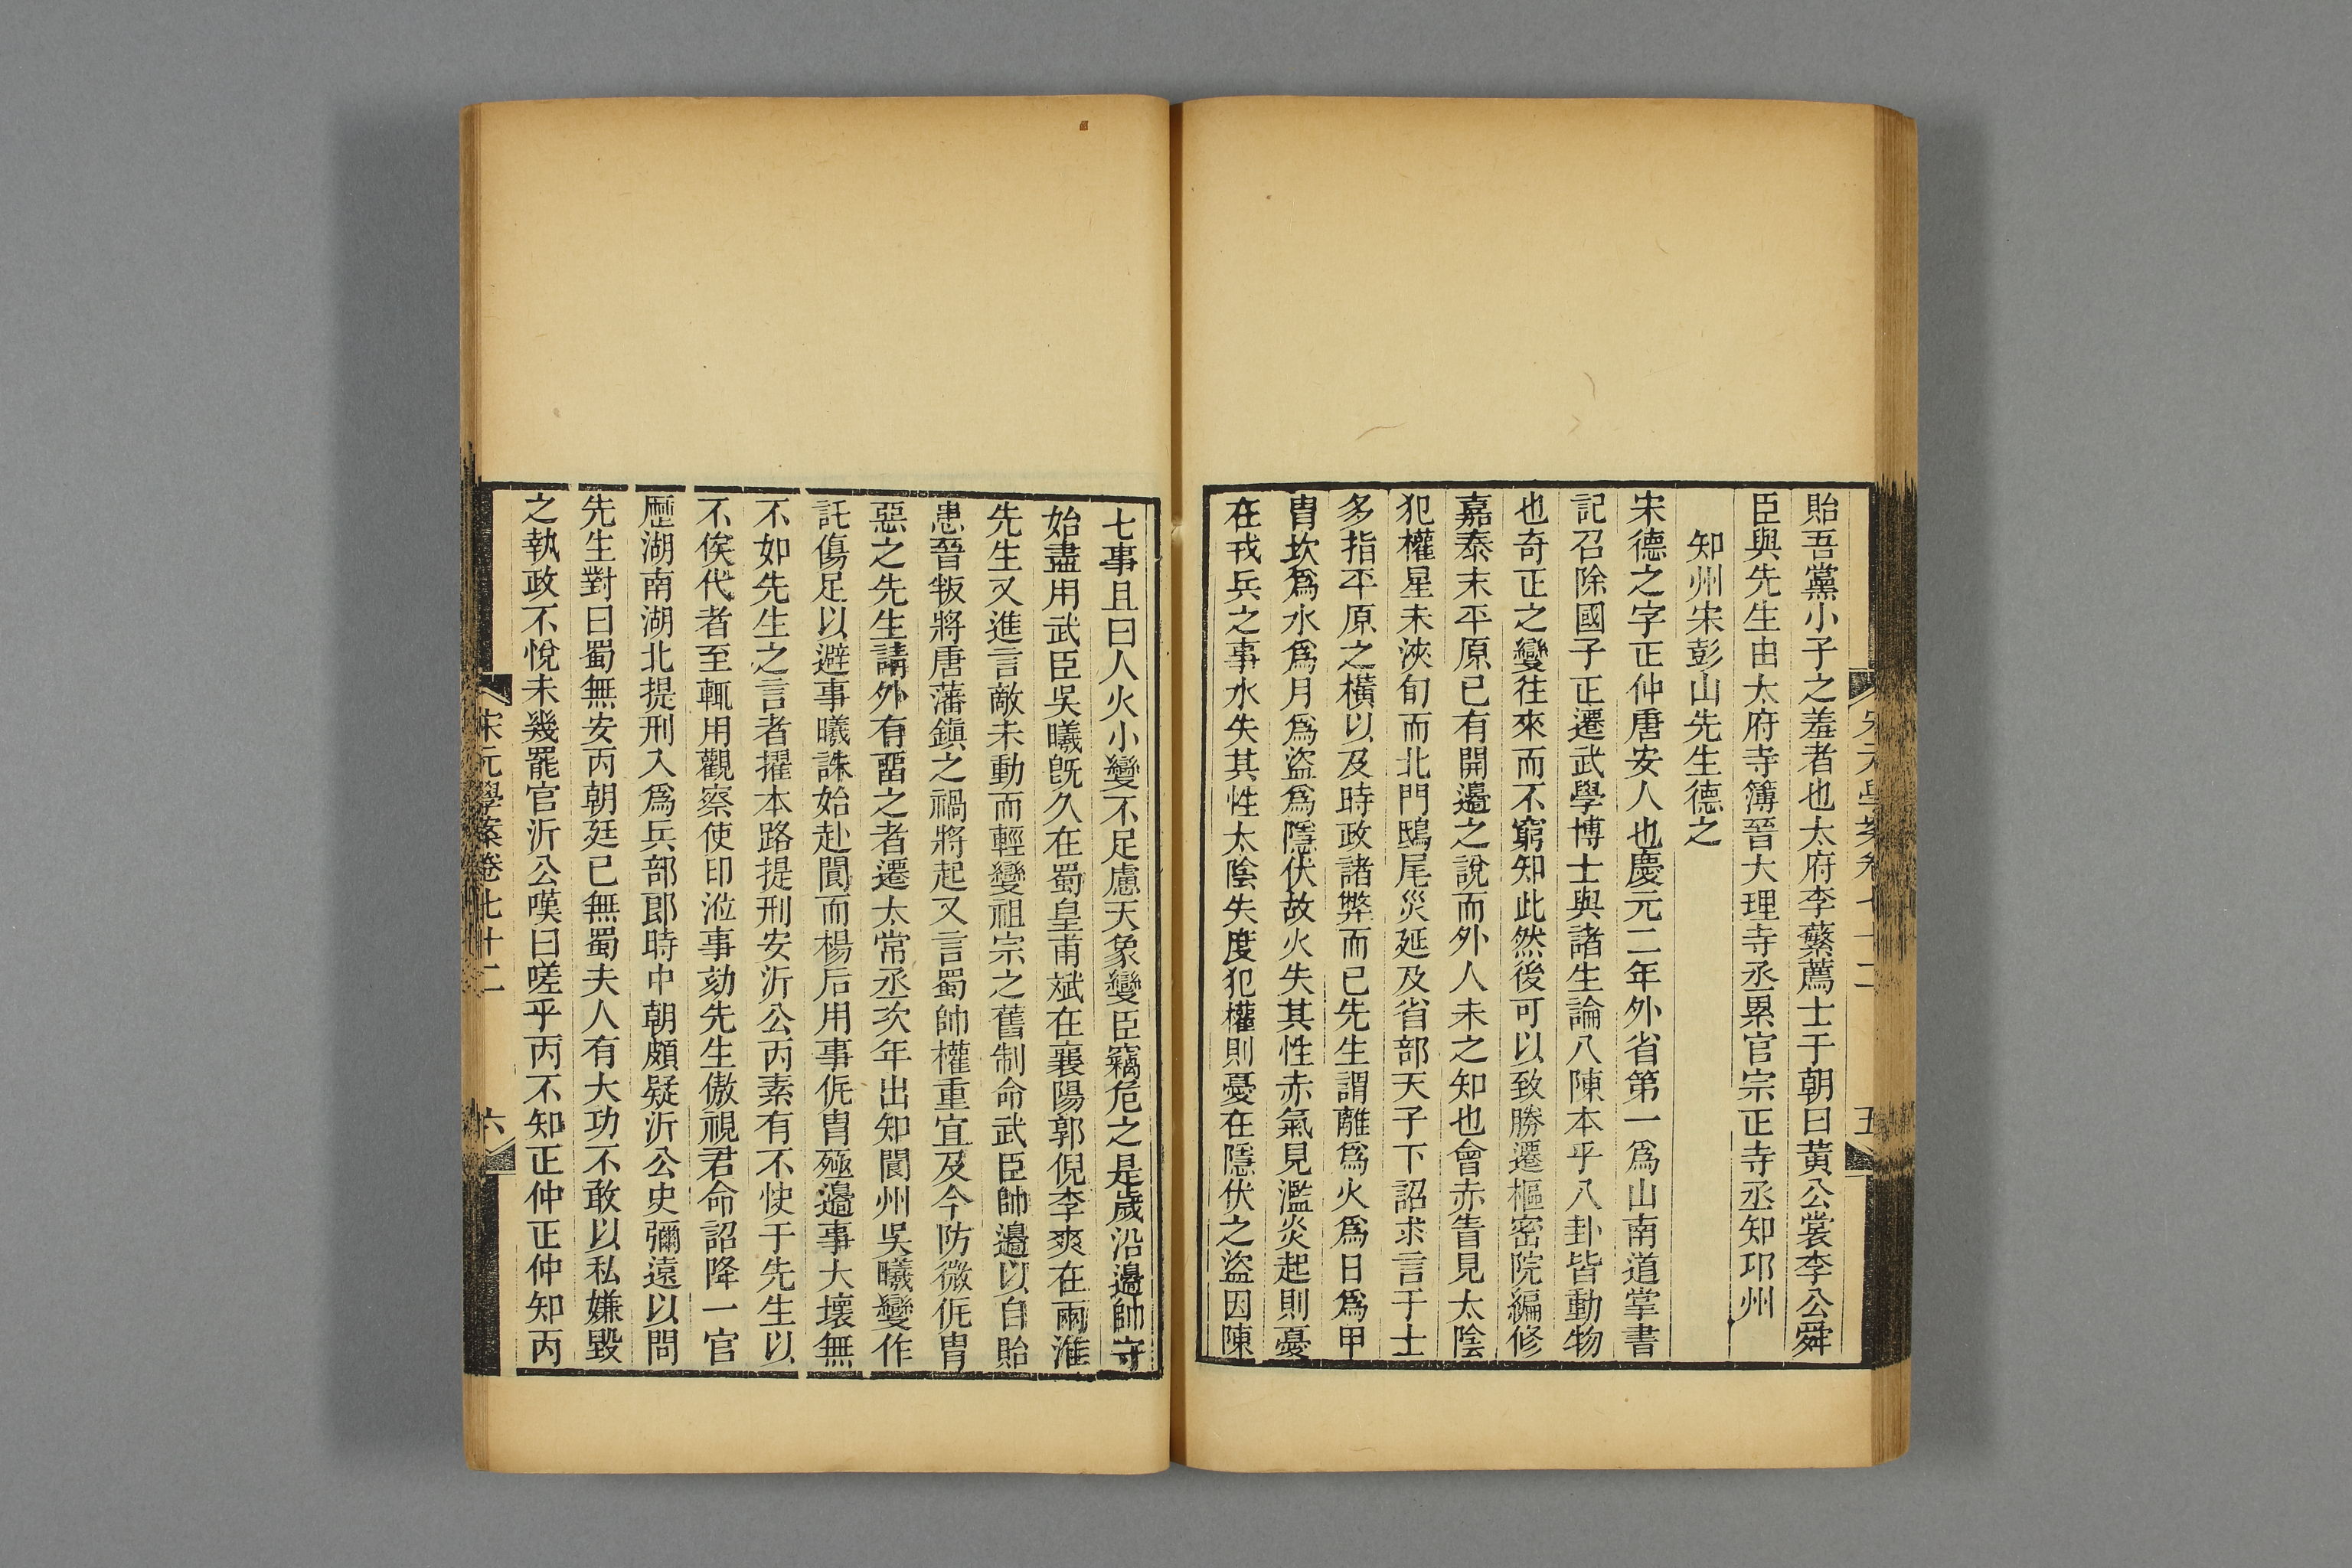 貽吾黨小子之羞者也太府李蘩薦士于朝曰黃公裳李公舜
臣與先生由太府寺簿晉大理寺丞累官宗正寺丞知邛州
知州宋彭山先生德之
宋德之字正仲唐安人也慶元二年外省第一爲山南道掌書
記召除國子正遷武學博士與諸生論八陳本乎八卦皆動物
也奇正之變往來而不窮知此然後可以致勝遷樞密院編修
嘉泰末平原已有開邊之說而外人未之知也會赤眚見太陰
犯權星未浹旬而北門鴟尾災延及省部天子下詔求言于士
多指平原之橫以及時政諸弊而已先生謂離爲火爲日爲甲
冑坎爲水爲月爲盜爲隱伏故火失其性赤氣見濫炎起則憂
在戎兵之事水失其性太陰失度犯權則憂在隱伏之盜因陳
宋元學案卷七十二
五
七事且曰人火小變不足慮天象變臣竊危之是歲沿邊帥守
始盡用武臣吳曦旣久在蜀皇甫斌在襄陽郭倪李爽在兩淮
先生又進言敵未動而輕變祖宗之舊制命武臣帥邊以自貽
患晉叛將唐藩鎭之禍將起又言蜀帥權重宜及今防微侂冑
惡之先生請外有畱之者遷太常丞次年出知閬州吳曦變作
託傷足以避事曦誅始赴閬而楊后用事侂冑殛邊事大壞無
不如先生之言者擢本路提刑安沂公丙素有不快于先生以
不俟代者至輒用觀察使印涖事劾先生傲視君命詔降一官
歷湖南湖北提刑入爲兵部郎時中朝頗疑沂公史彌遠以問
先生對曰蜀無安丙朝廷已無蜀夫人有大功不敢以私嫌毀
之執政不悅未幾罷官沂公嘆曰嗟乎丙不知正仲正仲知丙
宋元學案卷七十二
六